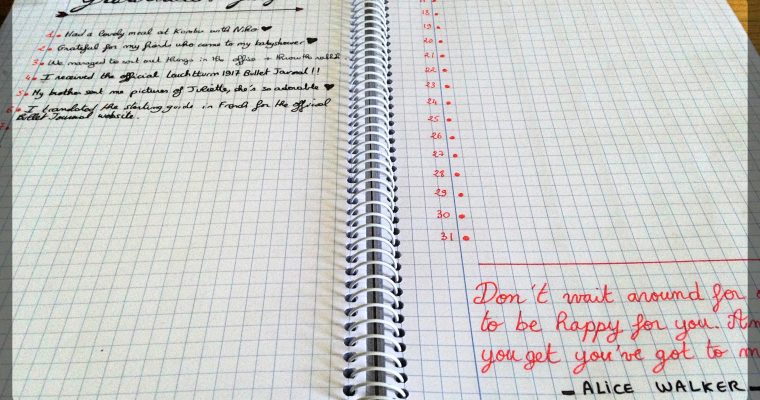 1. Had a lovely meal at Kumbu with Niko ♥
2. Grateful for my friends who came to my babyshower ♥
3. We managed to sort out things in the office
4. I received the official Leuchtturm 1917 Bullet Journal !!
5. My brother sent me pictures of Juliette, she's so adorable ♥
6. I translated the starting guide in French for the official
Bullet Journal website.
7.
18
19
20
21
22
23
24
25
26
27
28
29
30
31
Don't wait around for
to be happy for you. An
you get you've got to m
- ALICE WALKER -